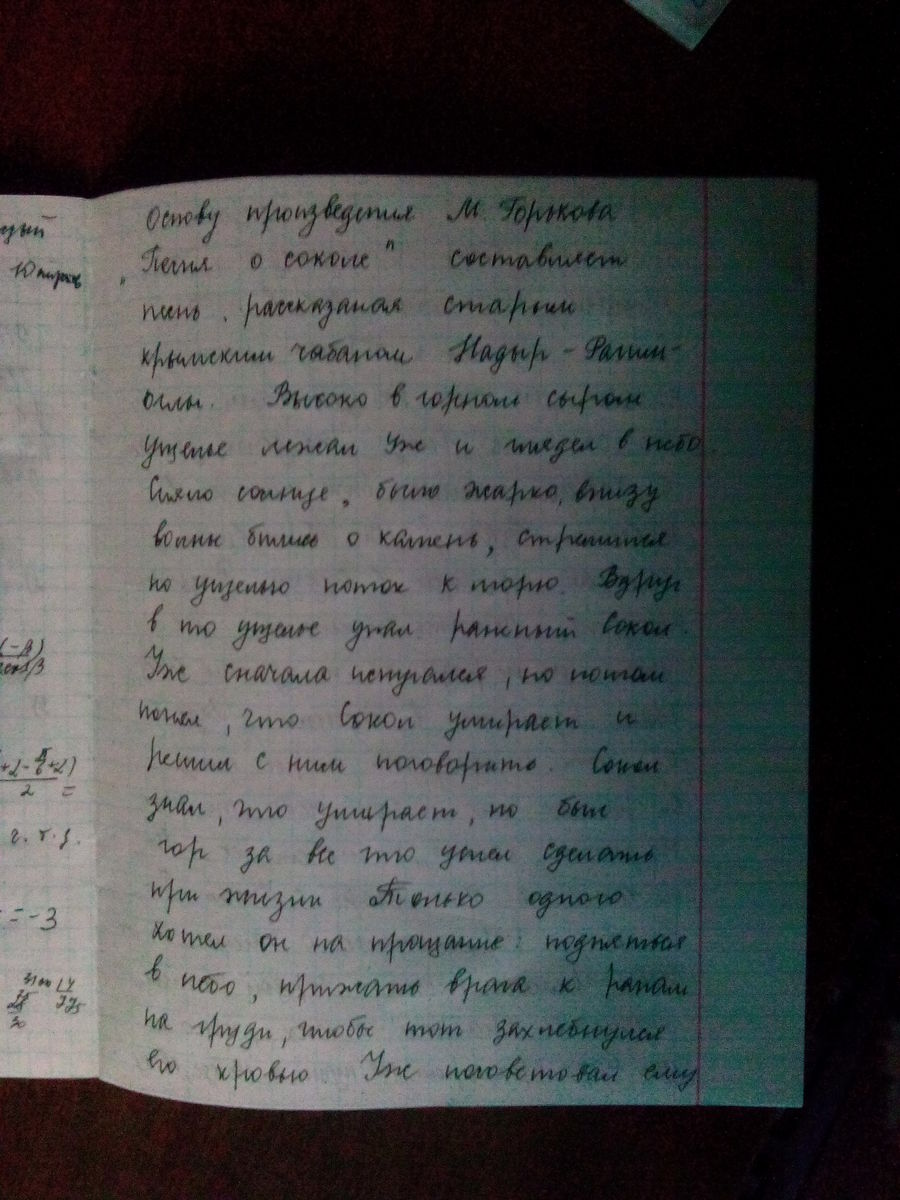 Основу произведения М. Горькова
„Песня о соколе" составляет
песнь, рассказаная старым
крымским чабаном Надыр-Рагим-
оглы. Высоко в горном сыром
ущелье лежал Уж и глядел в небо.
Сияло солнце, было жарко, внизу
волны бились о камень, стремился
по ущелью поток к морю. Вдруг
в то ущелье упал раненый Сокол.
Уж сначала испугался, но потом
понял, что Сокол умирает и
решил с ним поговорить. Сокол
знал, что умирает, но был
гор за все что успел сделать
при жизни Только одного
хотел он на прощание: подняться
в небо, прижать врага к ранам
на груди, чтобы тот захлебнулся
его кровью. Уж посоветовал ему
10
2 =
ч. т. д.
= -3